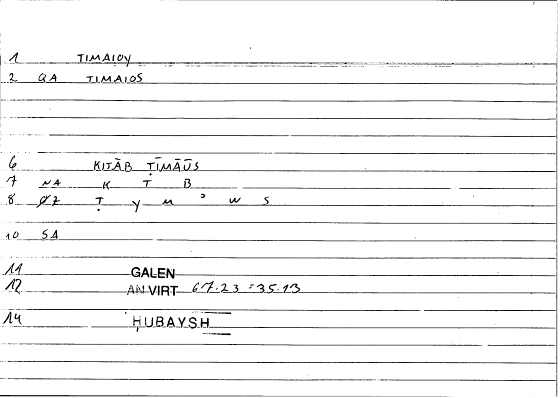 1 TIMAIOY
2 QA TIMAIOS
6 KITĀB ṬĪMĀŪS
7 NA K T B
8 ØZ Ṭ y m ʾ w s
10 SA
11 GALEN
12 AN VIRT 67.23 = 35.13
14 ḤUBAYSH